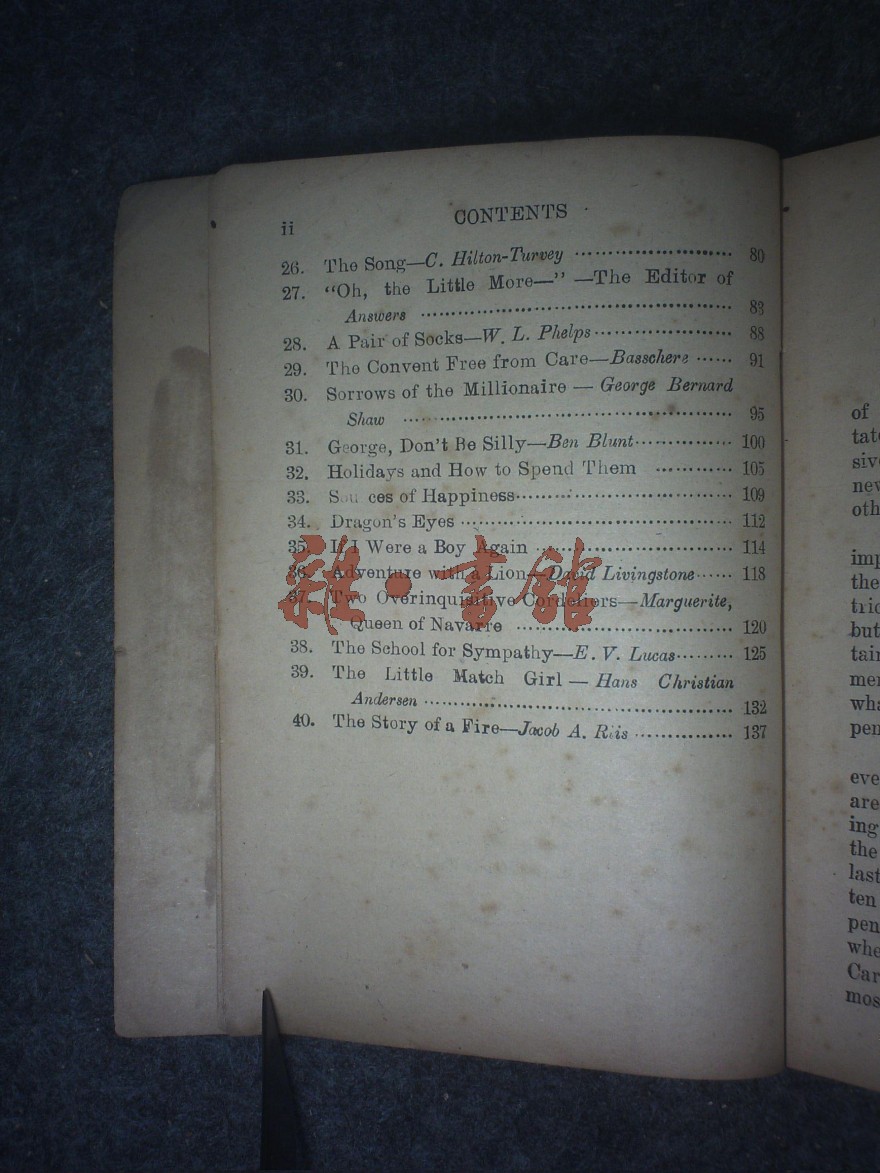 ii
CONTENTS
26. The Song—C. Hilton-Turvey 80
27. “Oh, the Little More—” —The Editor of
Answers 83
28. A Pair of Socks—W. L. Phelps 88
29. The Convent Free from Care—Basschere 91
30. Sorrows of the Millionaire — George Bernard
Shaw 95
31. George, Don't Be Silly—Ben Blunt 100
32. Holidays and How to Spend Them 105
33. Sou ces of Happiness 109
34. Dragon's Eyes 112
35. If I Were a Boy Again 114
36. Adventure with a Lion—David Livingstone 118
37. Two Overinquisitive Cordeliers—Marguerite,
Queen of Navarre 120
38. The School for Sympathy—E. V. Lucas 125
39. The Little Match Girl — Hans Christian
Andersen 132
40. The Story of a Fire—Jacob A. Riis 137
雜·書館
of
tat
siv
nev
oth
imp
the
tric
but
tair
mer
wha
pen
eve
are
ing
the
last
ten
pen
whe
Car
mos